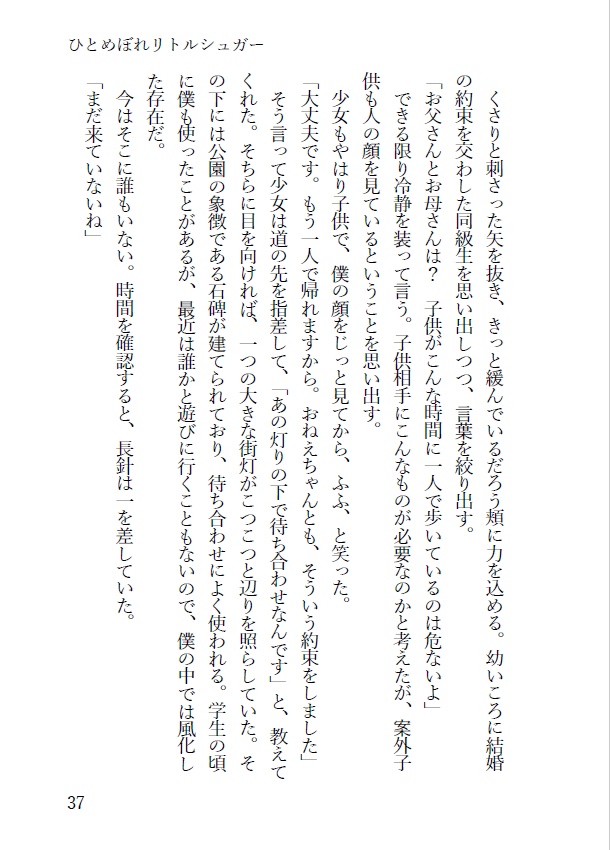 ひとめぼれリトルシュガー
　くさりと刺さった矢を抜き、きっと緩んでいるだろう頬に力を込める。幼いころに結婚
の約束を交わした同級生を思い出しつつ、言葉を絞り出す。
「お父さんとお母さんは？　子供がこんな時間に一人で歩いているのは危ないよ」
　できる限り冷静を装って言う。子供相手にこんなものが必要なのかと考えたが、案外子
供も人の顔を見ているということを思い出す。
　少女もやはり子供で、僕の顔をじっと見てから、ふふ、と笑った。
「大丈夫です。もう一人で帰れますから。おねえちゃんとも、そういう約束をしました」
　そう言って少女は道の先を指差して、「あの灯りの下で待ち合わせなんです」と、教えて
くれた。そちらに目を向ければ、一つの大きな街灯がこつこつと辺りを照らしていた。そ
の下には公園の象徴である石碑が建てられており、待ち合わせによく使われる。学生の頃
に僕も使ったことがあるが、最近は誰かと遊びに行くこともないので、僕の中では風化し
た存在だ。
　今はそこに誰もいない。時間を確認すると、長針は一を差していた。
「まだ来ていないね」
37